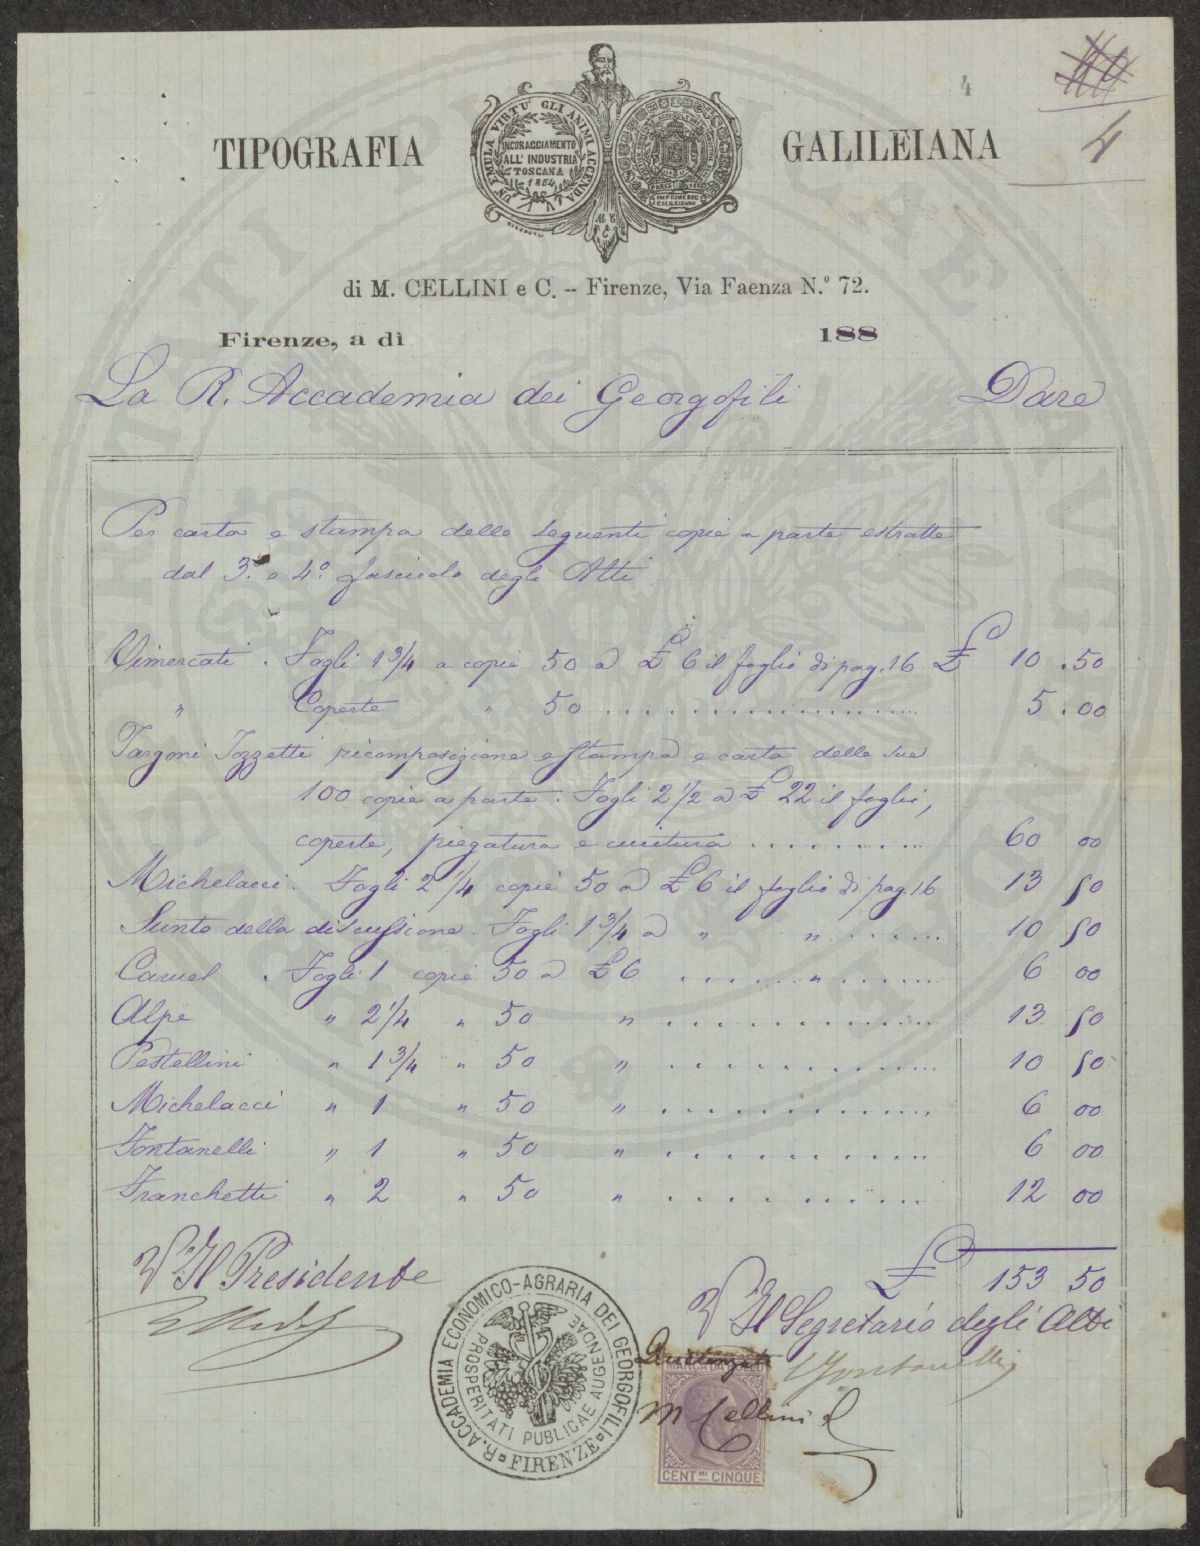 4
4
TIPOGRAFIA GALILEIANA
UN EMULA VIRTU' GLI ANIMI ACCENDA
INCORAGGIAMENTO
ALL' INDUSTRIA
TOSCANA
1854
di M. CELLINI e C. -- Firenze, Via Faenza N.º 72.
Firenze, a dì 188
La R. Accademia dei Georgofili Dare
Per carta e stampa delle seguenti copie a parte estratte
dal 3º. e 4º. fascicolo degli Atti
Vimercati . Fogli 1 3/4 a copie 50 a £ 6 il foglio di pag. 16 £ 10 . 50
" Coperte " 50 .................. 5 . 00
Targoni Tozzetti ricomposizione e stampa e carta delle sue
100 copie a parte. Fogli 2 1/2 a £ 22 il foglio,
coperte, piegatura e cucitura ......... 60 00
Michelacci. Fogli 2 1/4 copie 50 a £ 6 il foglio di pag. 16 13 50
Sunto della discussione. Fogli 1 3/4 a " " ...... 10 50
Caruel . Fogli 1 copie 50 a £ 6 ...... " ...... 6 00
Alpe " 2 1/4 " 50 " ............. 13 50
Pestellini " 1 3/4 " 50 " ............. 10 50
Michelacci " 1 " 50 " ............. 6 00
Fontanelli " 1 " 50 " ............. 6 00
Franchetti " 2 " 50 " ............. 12 00
£ 153 50
V Il Presidente
V Il Segretario degli Atti
Quietanzata
C Fontanelli
M Cellini C
R. ACCADEMIA ECONOMICO-AGRARIA DEI GEORGOFILI
PROSPERITATI PUBLICAE AUGENDAE
FIRENZE
MARCA DA BOLLO
CENT. MI CINQUE